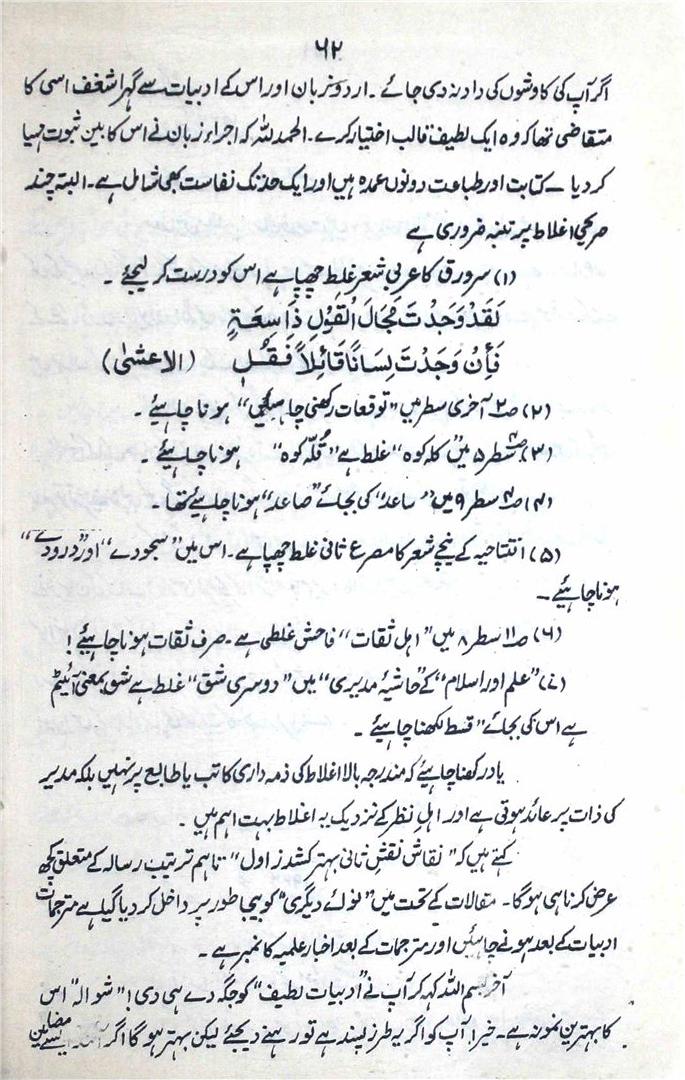 ۶۲
اگر آپ کی کاوشوں کی داد نہ دی جائے ۔ اردو زبان اور اس کے ادبیات سے گہرا شغف اسی کا
متقاضی تھا کہ وہ ایک لطیف قالب اختیار کرے ۔ الحمد للہ کہ اجراء زبان نے اس کا بین ثبوت مہیا
کر دیا ۔ کتابت اور طباعت دونوں عمدہ ہیں اور ایک حد تک نفاست بھی شامل ہے ۔ البتہ چند
صریحی اغلاط پر تنبہ ضروری ہے
(۱) سرورق کا عربی شعر غلط چھپا ہے اس کو درست کر لیجئے ۔
لَقَدْ وَجَدْتَ مَجَالَ الْقَوْلِ ذَا سِعَةٍ
فَأِنْ وَجَدْتَ لِسَانًا قَائِلاً فَقُلِ (الاعشیٰ)
(۲) ص۲ آخری سطر میں ”توقعات رکھنی چاہئیں“ ہونا چاہیئے ۔
(۳) ص۴ سطر ۵ میں ”کلہ کوہ“ غلط ہے ”قُلّہ کوہ“ ہونا چاہیئے ۔
(۴) ص۴ سطر ۹ میں ”ساعد“ کی بجائے ”صاعد“ ہونا چاہیئے تھا ۔
(۵) افتتاحیہ کے نیچے شعر کا مصرع ثانی غلط چھپا ہے ۔ اس میں ”سجودے“ اور ”درودے“
ہونا چاہیئے ۔
(۶) ص۱۱ سطر ۸ میں ”اہل ثقات“ فاحش غلطی ہے ۔ صرف ثقات ہونا چاہیئے !
(۷) ”علم اور اسلام“ کے ”حاشیۂ مدیری“ میں ”دوسری شق“ غلط ہے شق بمعنی آئیٹم
ہے اس کی بجائے ”قسط لکھنا چاہیئے ۔
یاد رکھنا چاہیئے کہ مندرجہ بالا اغلاط کی ذمہ داری کاتب یا طابع پر نہیں بلکہ مدیر
کی ذات پر عائد ہوتی ہے اور اہلِ نظر کے نزدیک یہ اغلاط بہت اہم ہیں ۔
کہتے ہیں کہ ”نقاش نقشِ ثانی بہتر کشد ز اول“ تاہم ترتیب رسالہ کے متعلق کچھ
عرض کرنا ہی ہوگا ۔ مقالات کے تحت میں ”نوائے دیگری“ کو بیجا طور پر داخل کر دیا گیا ہے مترجمات
ادبیات کے بعد ہونے چاہئیں اور مترجمات کے بعد اخبار علمیہ کا نمبر ہے ۔
آخر بسم اللہ کہہ کر آپ نے ”ادبیات لطیف“ کو جگہ دے ہی دی ! ”شوالہ“ اس
کا بہترین نمونہ ہے ۔ خیر! آپ کو اگر یہ طرز پسند ہے تو رہنے دیجئے لیکن بہتر ہوگا اگر ایسے مضامین